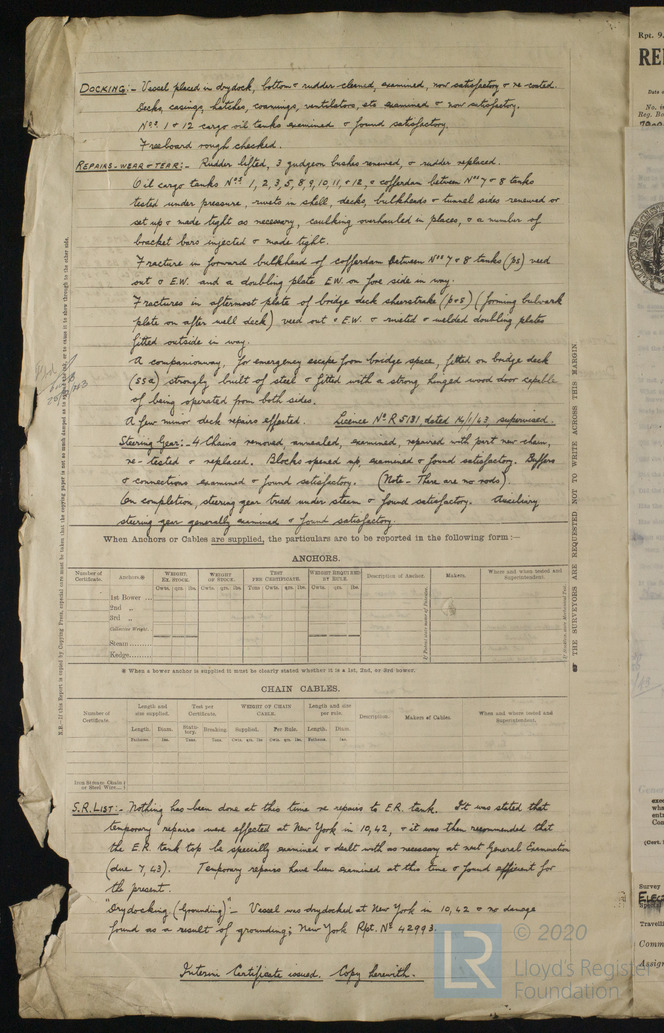 DOCKING:- Vessel placed in drydock, bottom & rudder cleaned, examined, now satisfactory & re-coated.
Decks, casings, hatches, coamings, ventilators, etc examined & now satisfactory.
Nos 1 & 12 cargo oil tanks examined & found satisfactory.
Freeboard rough checked.
REPAIRS-WEAR & TEAR:- Rudder lifted, 3 gudgeon bushes renewed, & rudder replaced.
Oil cargo tanks Nos 1, 2, 3, 5, 8, 9, 10, 11, & 12, & cofferdam between Nos 7 & 8 tanks
tested under pressure, rivets in shell, decks, bulkheads & tunnel sides renewed or
set up & made tight as necessary, caulking overhauled in places, & a number of
bracket bars injected & made tight.
Fracture in forward bulkhead of cofferdam between Nos 7 & 8 tanks (ps) veed
out & E.W. and a doubling plate E.W. on fore side in way.
Fractures in aftermost plate of bridge deck sheerstrake (p&s) (forming bulwark
plate on after well deck) veed out & E.W. & riveted & welded doubling plates
fitted outside in way.
A companionway, for emergency escape from bridge space, fitted on bridge deck
(ssa) strongly built of steel & fitted with a strong hinged wood door capable
of being operated from both sides.
A few minor deck repairs effected. Licence No R 5181 dated 14/1/43 supervised.
Steering Gear:- 4 Chains removed, annealed, examined, repaired with part new chain,
re-tested & replaced. Blocks opened up, examined & found satisfactory. Buffers
& connections examined & found satisfactory. (Note - There are no rods).
On completion, steering gear tried under steam & found satisfactory. Auxiliary
steering gear generally examined & found satisfactory.
When Anchors or Cables are supplied, the particulars are to be reported in the following form:—
ANCHORS.
Number of Certificate. Anchors.* WEIGHT. EX STOCK. WEIGHT OF STOCK. TEST PER CERTIFICATE. WEIGHT REQUIRED BY RULE. Description of Anchor. Makers. Where and when tested and Superintendent.
Cwts. qrs. lbs. Cwts. qrs. lbs. Tons Cwts. qrs. lbs. Cwts. qrs. lbs.
1st Bower ...
2nd „
3rd „
Collective Weight.
Stream
Kedge
* When a bower anchor is supplied it must be clearly stated whether it is a 1st, 2nd, or 3rd bower.
CHAIN CABLES.
Number of Certificate. Length and size supplied. Test per Certificate. WEIGHT OF CHAIN CABLE. Length and size per rule. Description. Makers of Cables. Where and when tested and Superintendent.
Length. Diam. Statutory. Breaking. Supplied. Per Rule. Length. Diam.
Fathoms Ins. Tons. Tons. Cwts. qrs. lbs. Cwts. qrs. lbs. Fathoms. Ins.
Iron Stream Chain or Steel Wire
S.R. LIST:- Nothing has been done at this time re repairs to E.R. tank. It was stated that
temporary repairs were effected at New York in 10,42, & it was then recommended that
the E.R. tank top be specially examined & dealt with as necessary at next General Examination
(due 7,43). Temporary repairs have been examined at this time & found efficient for
the present.
"Drydocking (Grounding)" - Vessel was drydocked at New York in 10,42 & no damage
found as a result of grounding; New York Rpt. No 42993.
Interim Certificate issued. Copy herewith.
THE SURVEYORS ARE REQUESTED NOT TO WRITE ACROSS THIS MARGIN
Rpt. 9.
© 2020
Lloyd's Register
Foundation